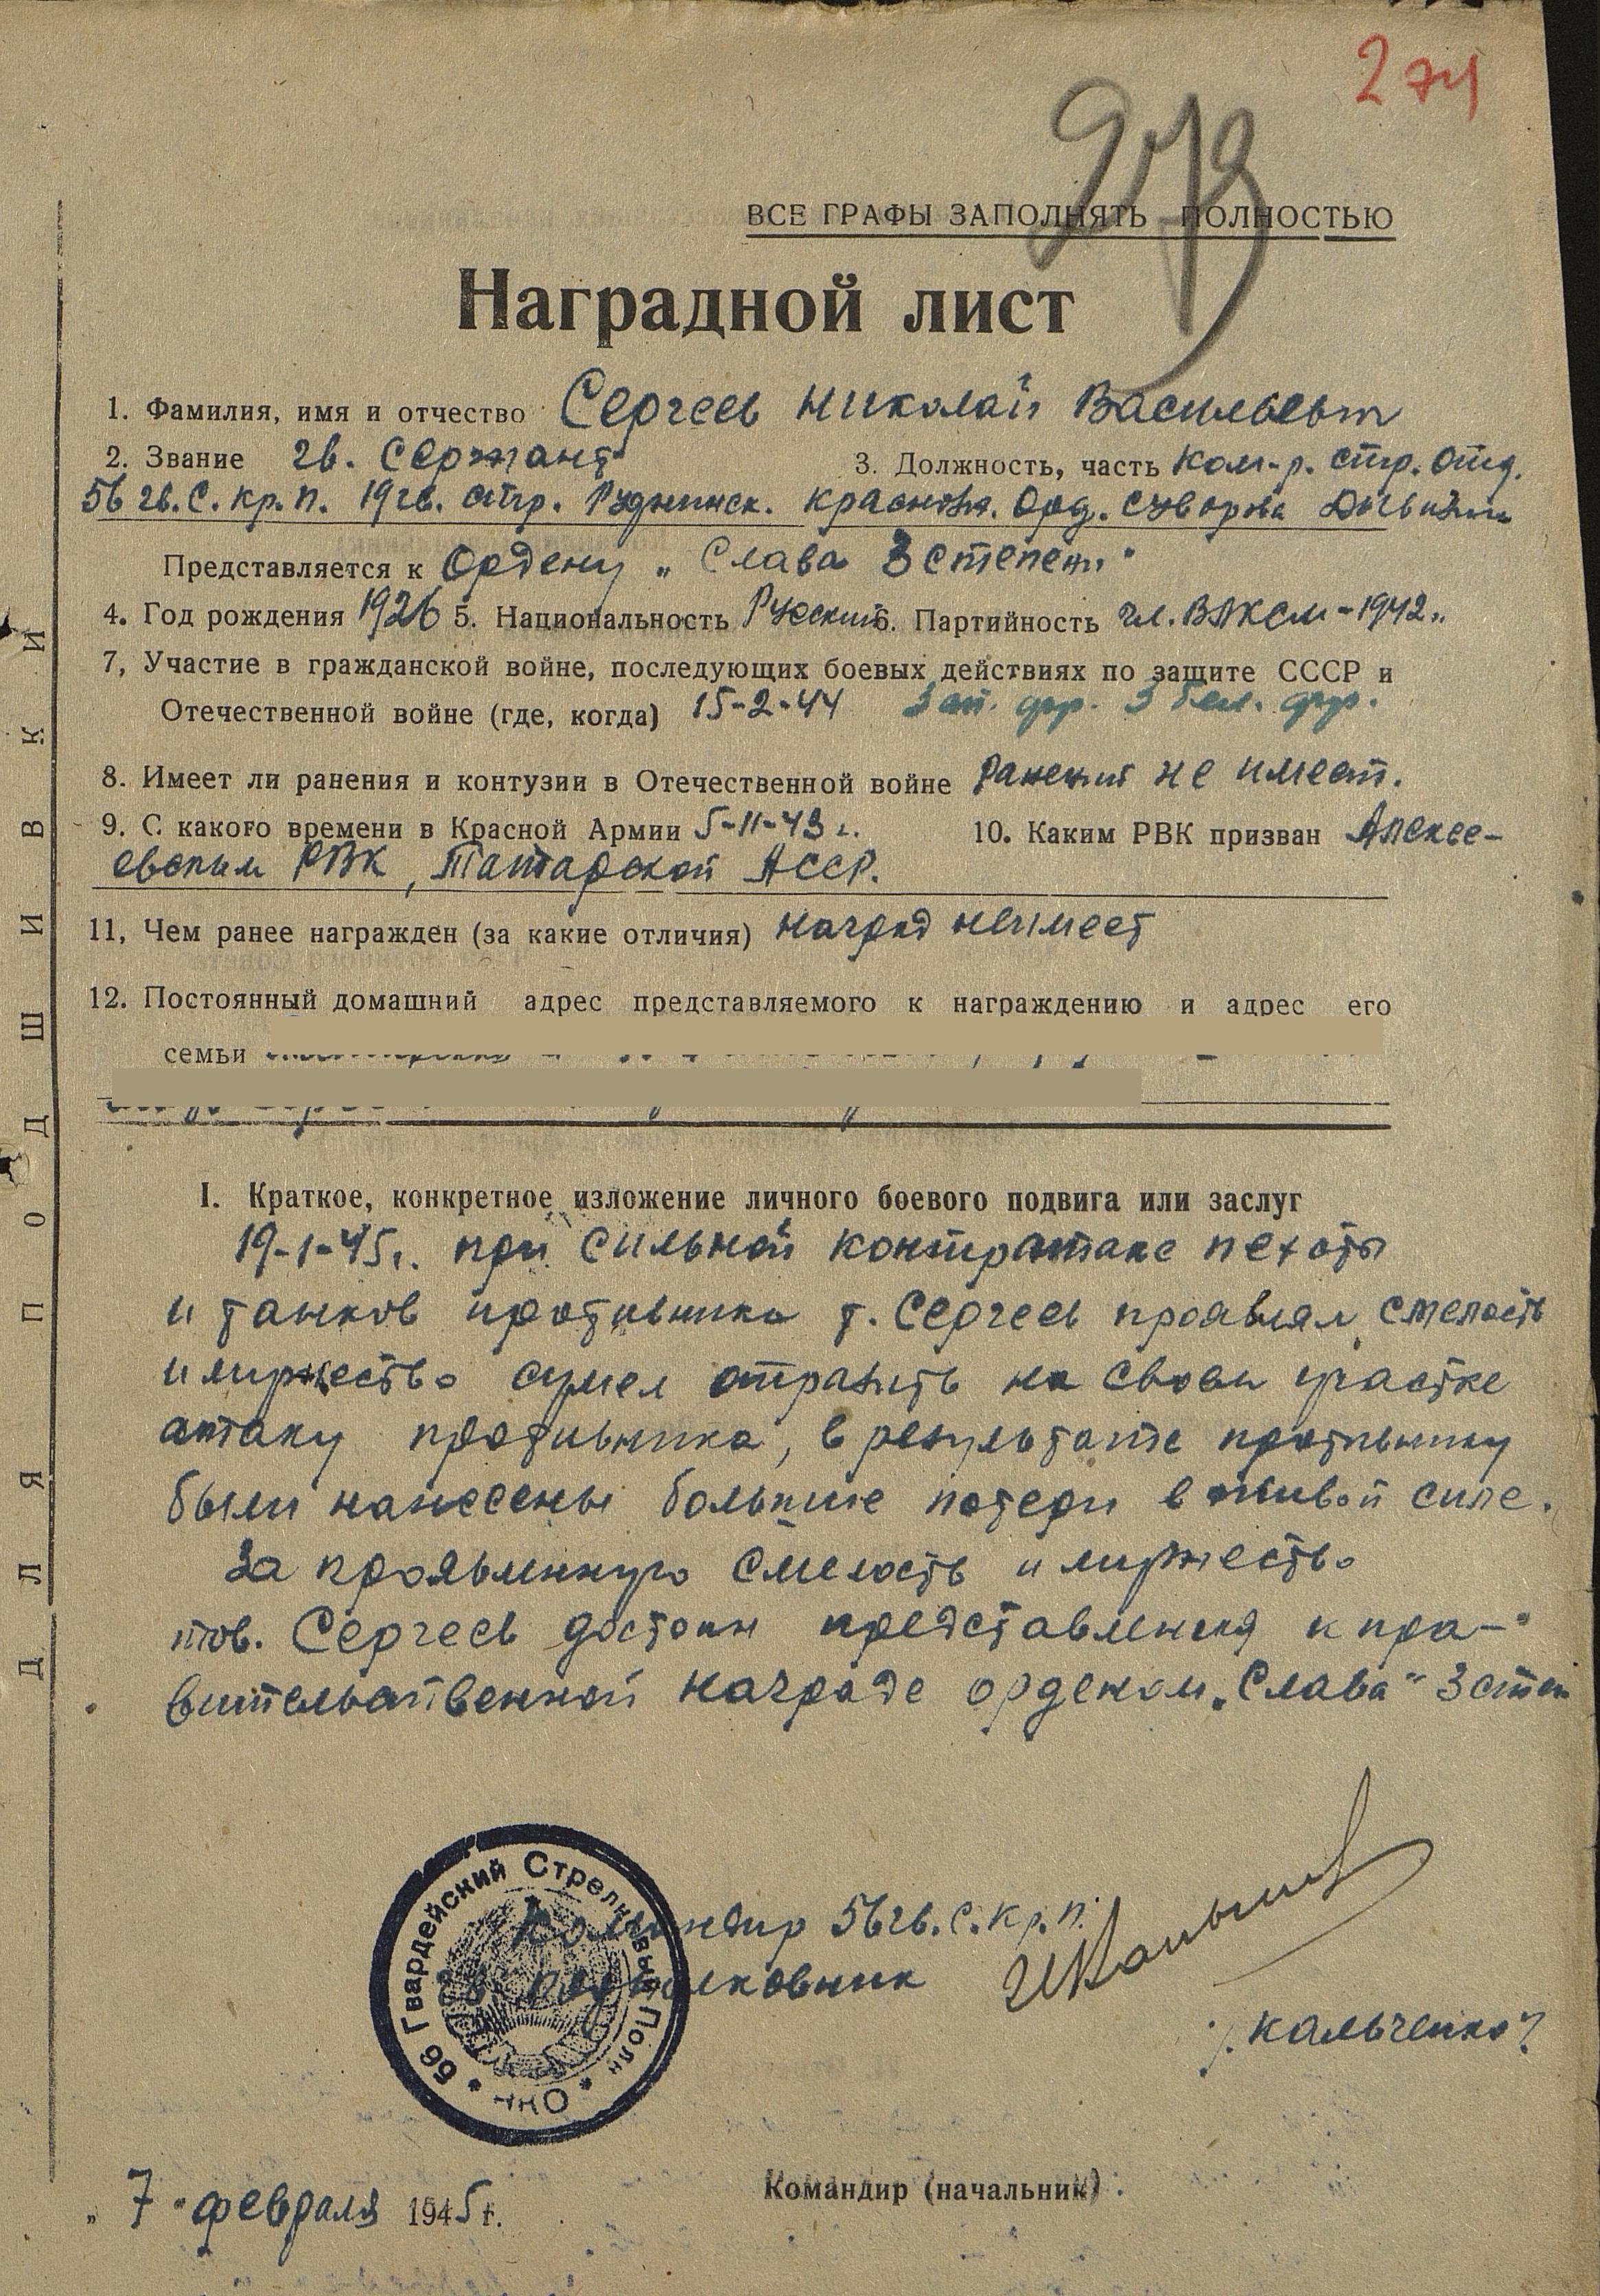 274
273
ВСЕ ГРАФЫ ЗАПОЛНЯТЬ ПОЛНОСТЬЮ
Наградной лист
1. Фамилия, имя и отчество Сергеев Николай Васильевич
2. Звание гв. Сержант 3. Должность, часть Ком-р. стр. отд.
56 гв. С. Кр. п. 19 гв. стр. Руднинск. Краснозн. Орд. Суворова Дивизии
Представляется к Ордену „Слава 3 степени"
4. Год рождения 1926 5. Национальность Русский 6. Партийность чл. ВЛКСМ-1942г.
7, Участие в гражданской войне, последующих боевых действиях по защите СССР и
Отечественной войне (где, когда) 15-2-44 Зап. фр. 3 Бел. фр.
8. Имеет ли ранения и контузии в Отечественной войне Ранений не имеет.
9. С какого времени в Красной Армии 5-11-43 г. 10. Каким РВК призван Алексе-
евским РВК, Татарской АССР.
11, Чем ранее награжден (за какие отличия) наград неимеет
12. Постоянный домашний адрес представляемого к награждению и адрес его
семьи
I. Краткое, конкретное изложение личного боевого подвига или заслуг
19-1-45г. при сильной контратаке пехоты
и танков противника т. Сергеев проявлял смелость
и мужество сумел отразить на своем участке
атаку противника, в результате противнику
были нанесены большие потери в живой силе.
За проявленную смелость и мужество
тов. Сергеев достоин представления к пра-
вительственной награде орденом „Слава" 3 степ
Командир 56 гв. С. Кр. п.
гв. подполковник
/Кальченко/
56 Гвардейский Стрелковый Полк
НКО
„7" февраля 1945 г.
Командир (начальник)
ДЛЯ ПОДШИВКИ